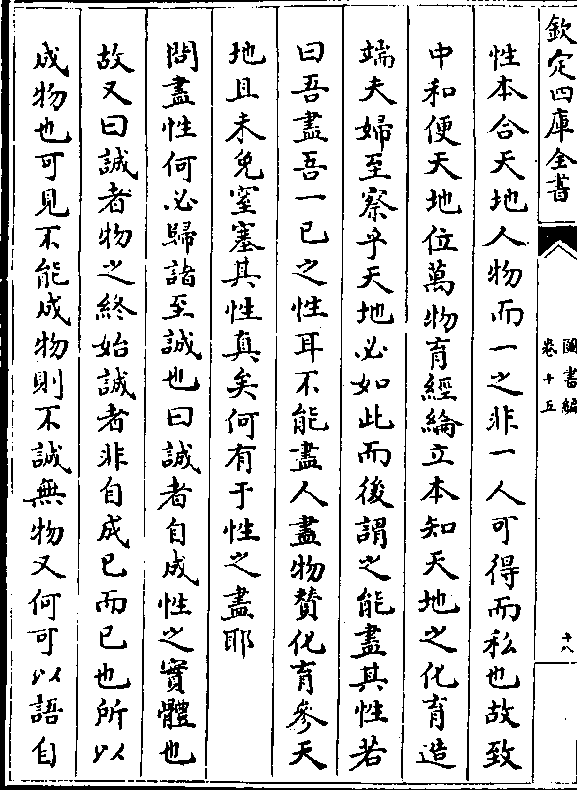 欽定四庫全書
圖書編
卷十五
十八
性本合天地人物而一之非一人可得而私也故致
中和便天地位萬物育經綸立本知天地之化育造
端夫婦至察乎天地必如此而後謂之能盡其性若
曰吾盡吾一已之性耳不能盡人盡物贊化育參天
地且未免窒塞其性真矣何有于性之盡耶
問盡性何必歸諸至誠也曰誠者自成性之實體也
故又曰誠者物之終始誠者非自成已而已也所以
成物也可見不能成物則不誠無物又何可以語自